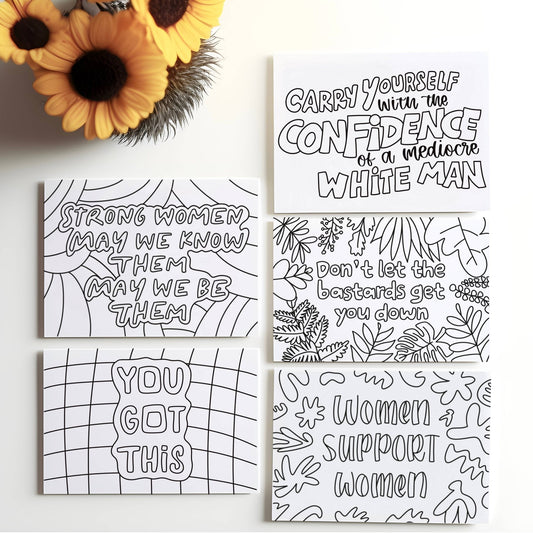 CARRY YOURSELF
with the
CONFIDENCE
of a mediocre
WHITE MAN
STRONG WOMEN
MAY WE KNOW
THEM
MAY WE BE
THEM
Don't let the
bastards get
you down
YOU
GOT
THIS
Women
SUPPORT
Women